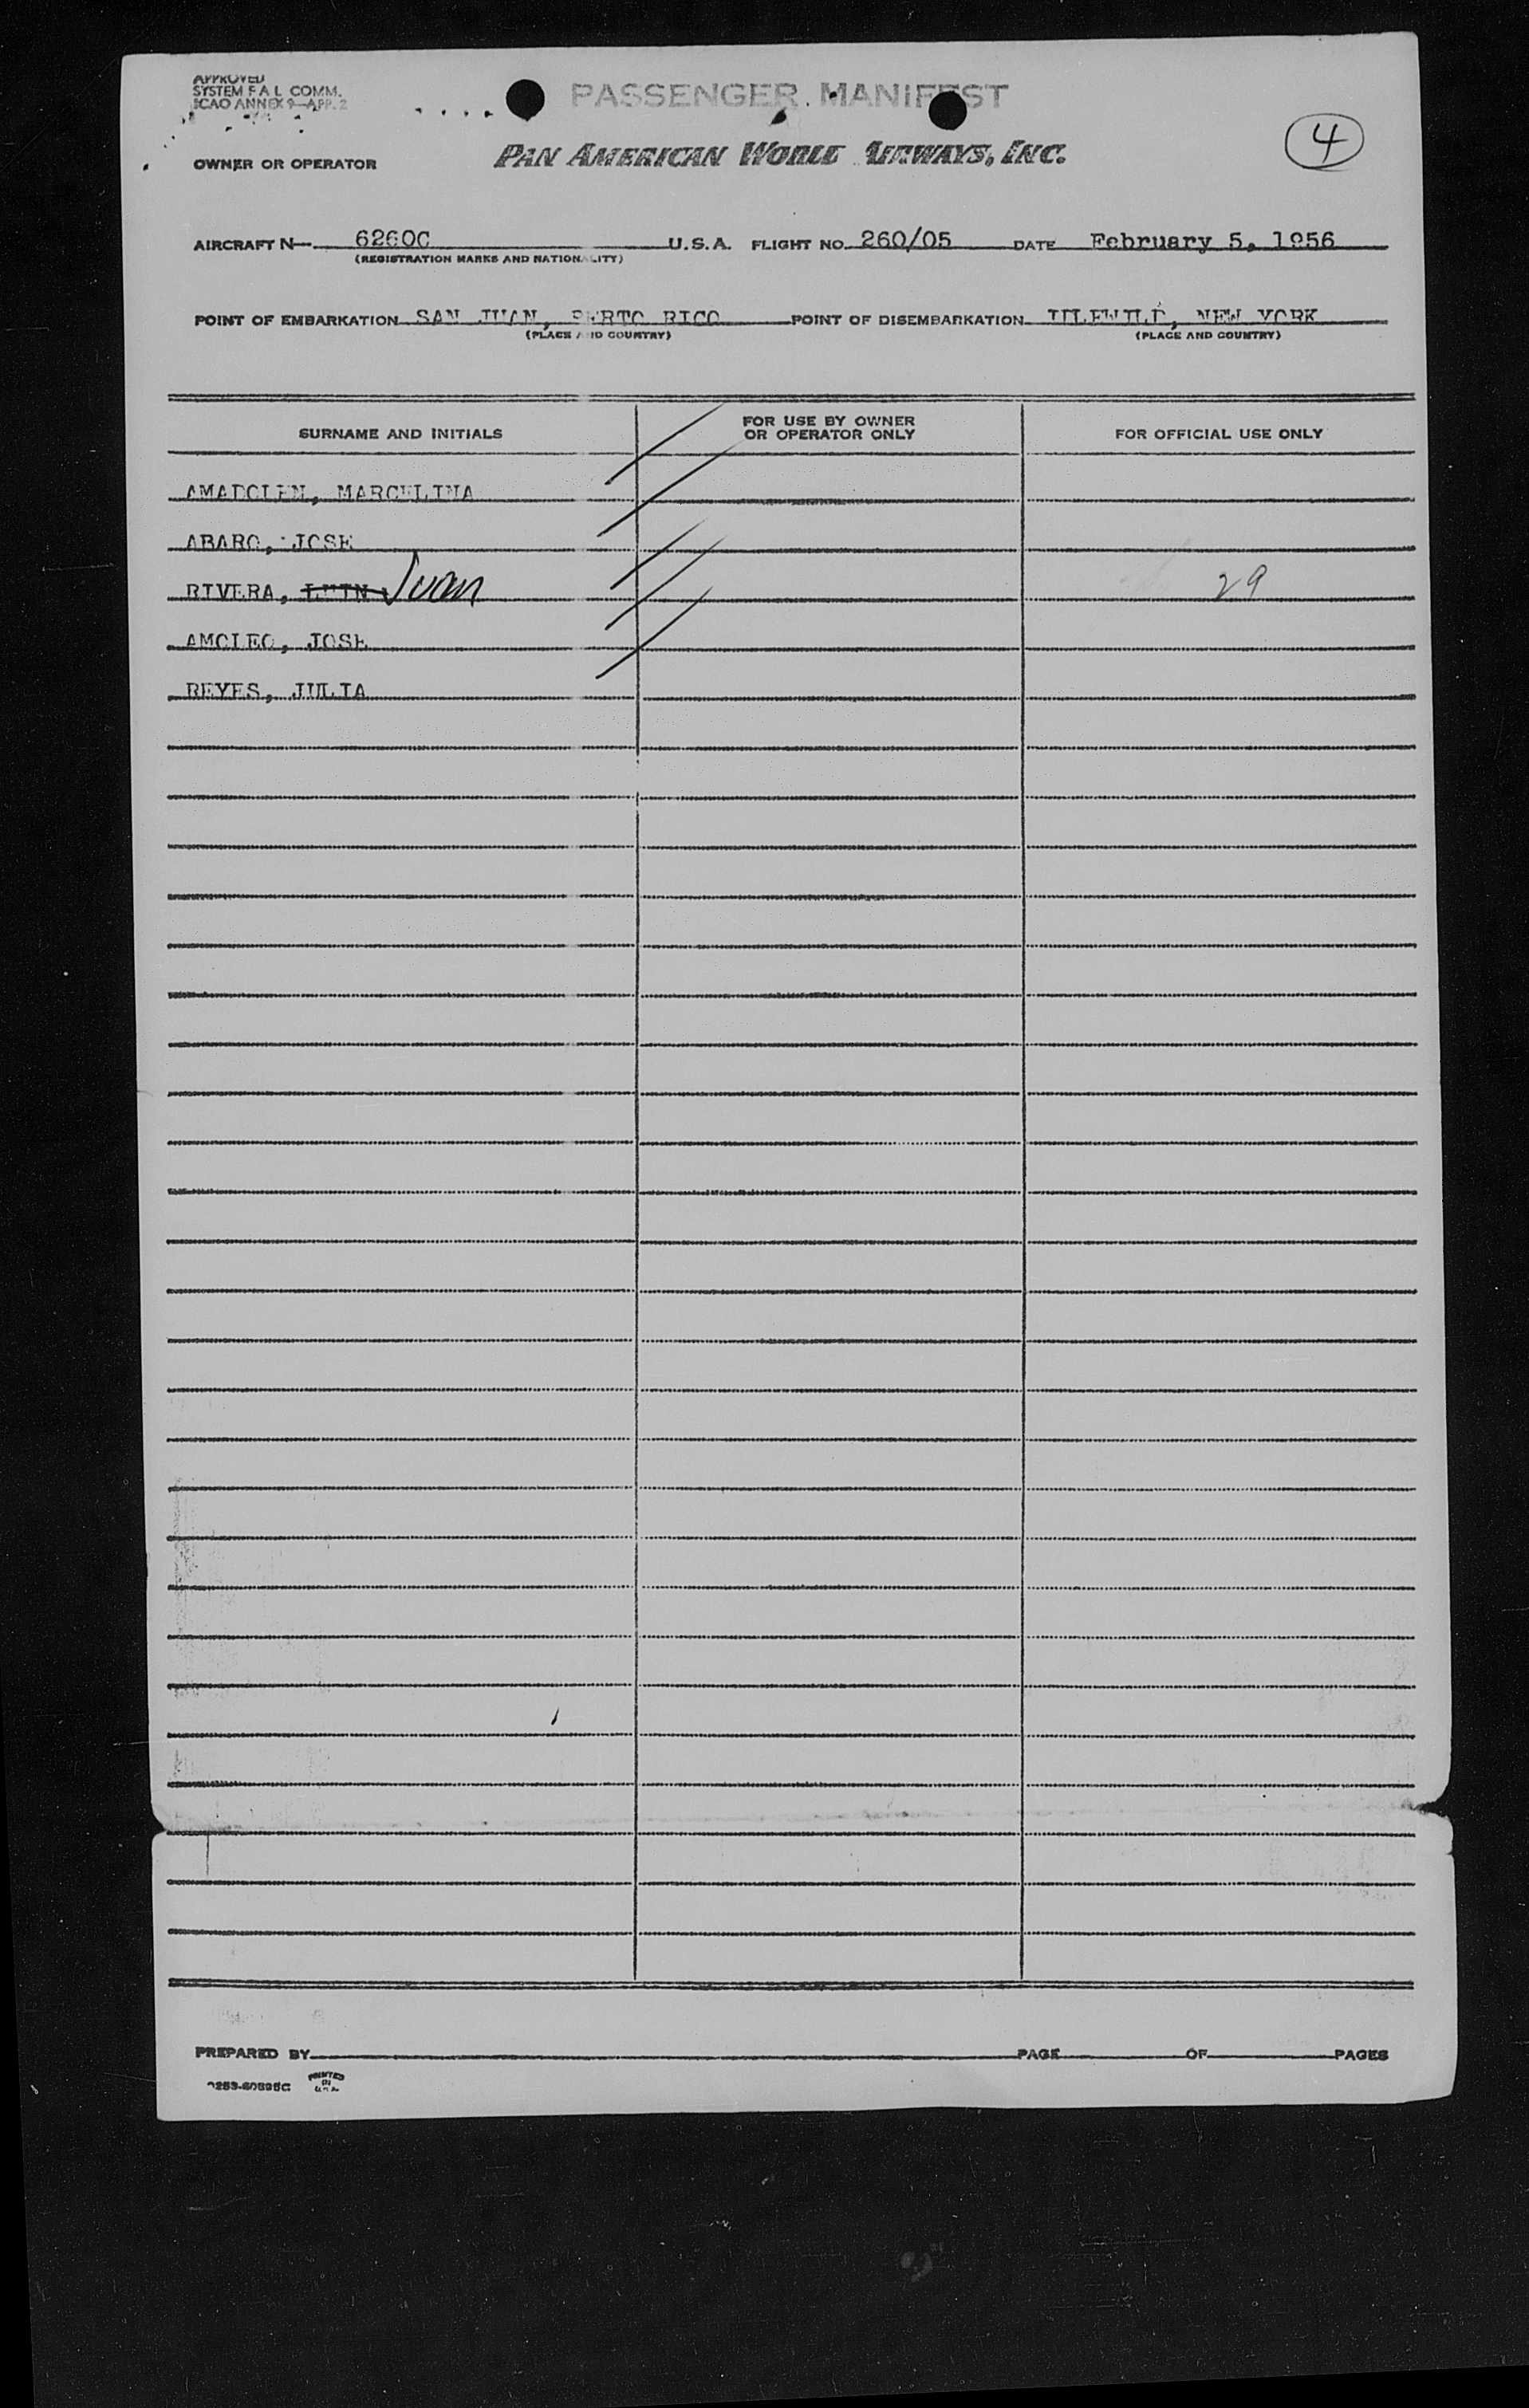 APPROVED
SYSTEM F A L COMM.
ICAO ANNEX 9—APP. 2
PASSENGER MANIFEST
4
OWNER OR OPERATOR PAN AMERICAN WORLD AIRWAYS, INC.
AIRCRAFT N— 6260C U.S.A. FLIGHT NO. 260/05 DATE February 5, 1956
(REGISTRATION MARKS AND NATIONALITY)
POINT OF EMBARKATION SAN JUAN, PERTO RICO POINT OF DISEMBARKATION IDLEWILD, NEW YORK
(PLACE AND COUNTRY) (PLACE AND COUNTRY)
SURNAME AND INITIALS FOR USE BY OWNER OR OPERATOR ONLY FOR OFFICIAL USE ONLY
MARCELINA
ABARO, JOSE
RIVERA, Juan 29
JOSE
REYES, JULIA
PREPARED BY PAGE OF PAGES
PRINTED
IN
U.S.A.